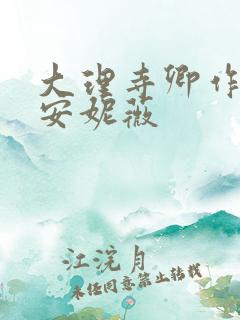 大理寺卿作
安妮薇
江浣月
未经同意禁止转载